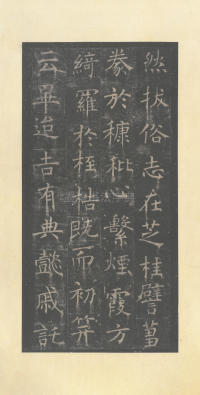 然拔俗志在芝桂譬蒭
豢於糠秕心繫煙霞方
綺羅於桎梏既而初笄
云畢迨吉有典懿戚託